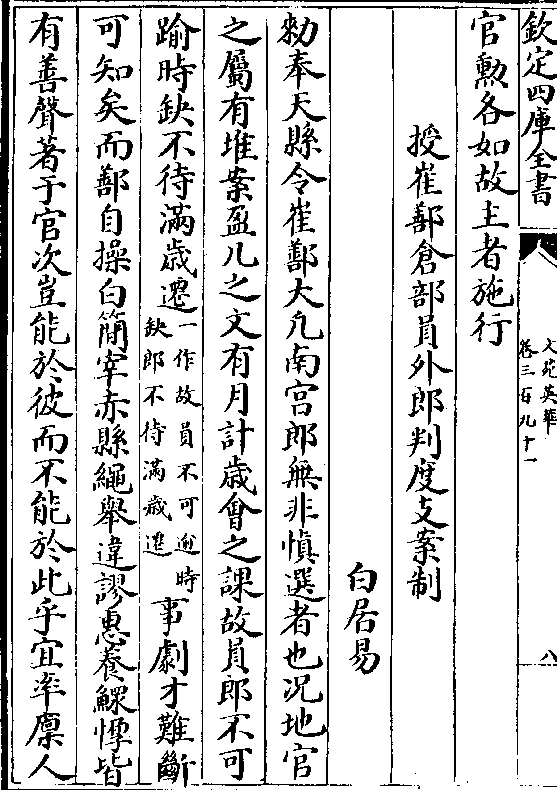 欽定四庫全書
文苑英華
卷三百九十一
八
官勲各如故主者施行
授崔鄯倉部員外郎判度支案制
白居易
勑奉天縣令崔鄯大凡南宫郎無非慎選者也况地官
之屬有堆案盈几之文有月計歲會之課故員郎不可
踰時缺不待滿歲遷一作故員不可逾時缺郎不待滿歲遷事劇才難斷
可知矣而鄯自操白簡宰赤縣繩舉違謬惠養鰥惸皆
有善聲著于官次豈能於彼而不能於此乎宜率廪人